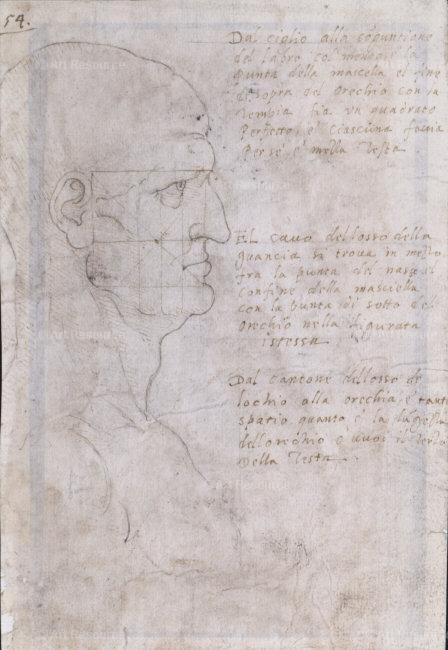 54.
Dal ciglio alla cöguntione
del labro col mento e la
punta della mascella el fine
di sopra del orechio con la
tempia fia un quadrato
perfetto, e ciascuna faccia
per se è mella testa
El cavo dellosso della
guancia si trova in mezo
fra la punta del naso el
confine della mascella
con la punta di sotto del
orechio nella figurata
istessa
Dal cantone dellosso de
lochio alla orechia, e tanto
spatio quanto è la
dellorechio e
Della Testa
Art Resource